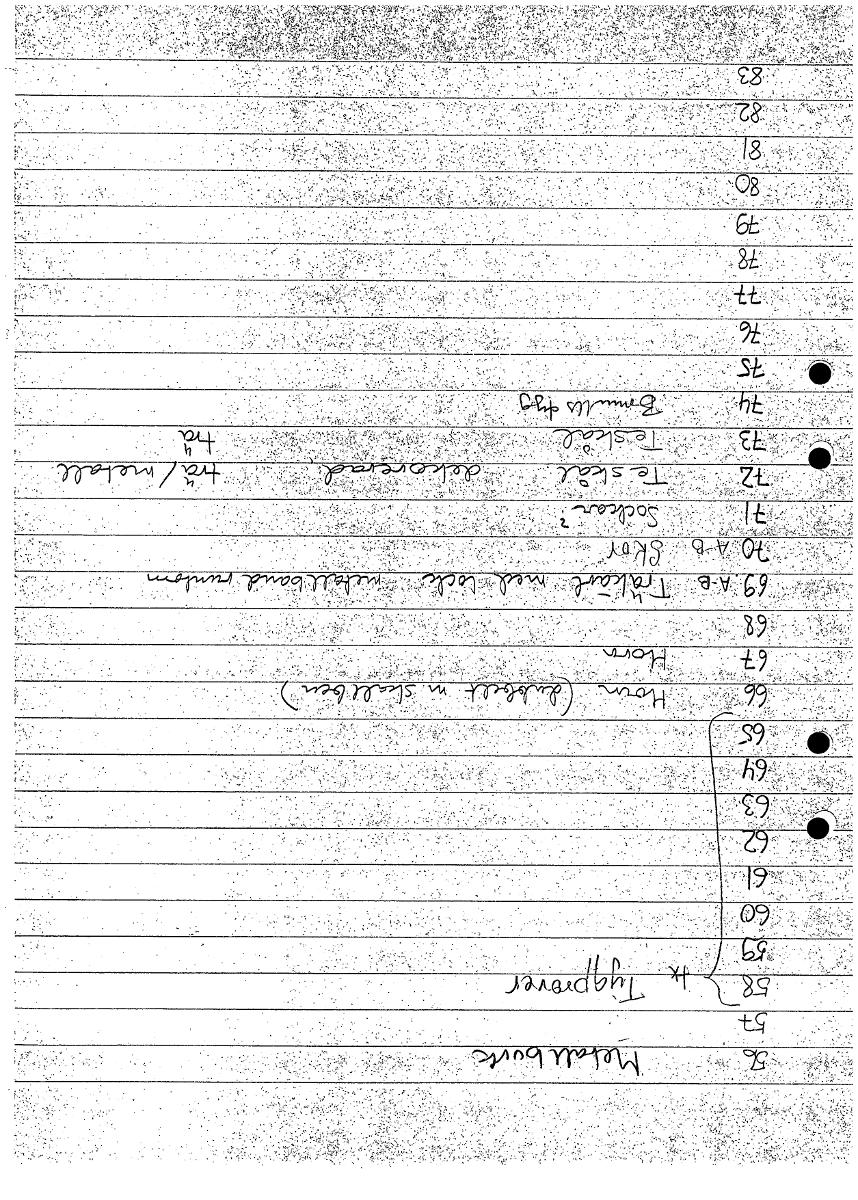 56 Metallburk
57
58 tx Tygprover
59
60
61
62
63
64
65
66 Horn (dubbelt m skallben)
67 Horn
68
69 A-B Träkärl med lock metallband runtom
70 A-B Skor
71 Sockan?
72 Te skål dekorerad, trä/metall
73 Te skål trä
74 Bomulls tyg
75
76
77
78
79
80
81
82
83